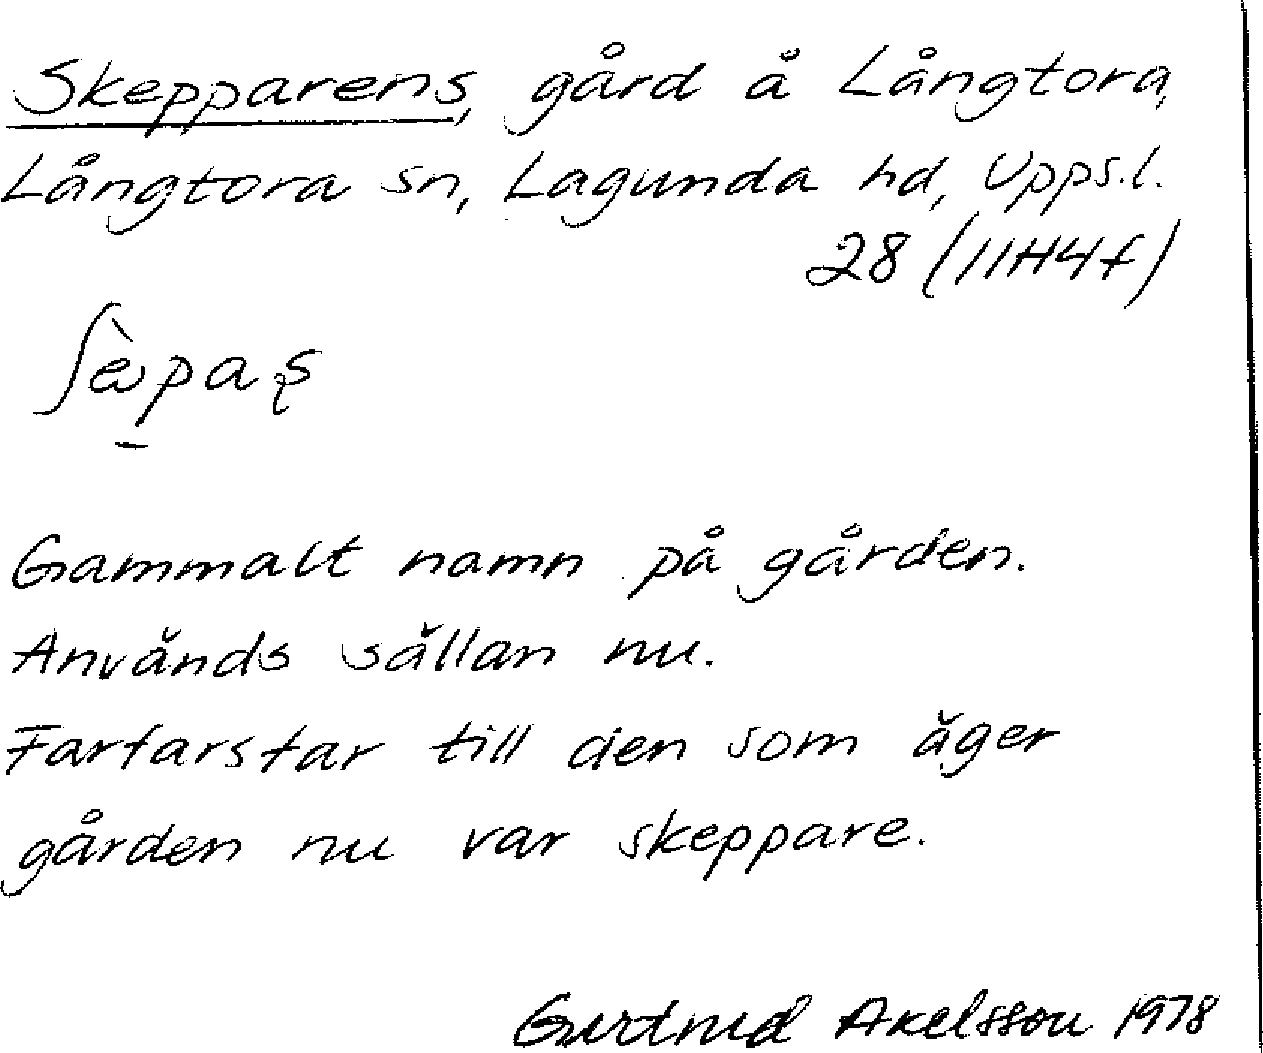 Skepparens, gård å Långtora,
Långtora sn, Lagunda hd, Upps.l.
28 (11H4f)
ʃèpaʂ
Gammalt namn på gården.
Används sällan nu.
Farfarsfar till den som äger
gården nu var skeppare.
Gertrud Axelsson 1978